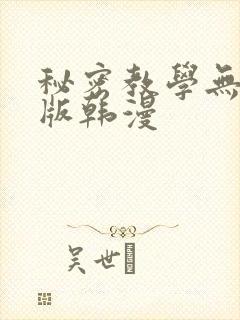 秘密教學無
版韩漫
吴世